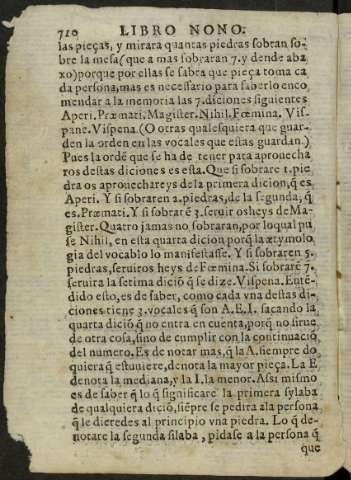 710 LIBRO NONO.
las pieças, y mirara quantas piedras sobran so-
bre la mesa (que a mas sobraran 7. y dende aba
xo) porque por ellas se sabra que pieça toma ca
da persona, mas es necessario para saberlo enco
mendar a la memoria las 7. diciones siguientes
Aperi. Præmati. Magister. Nihil. Fœmina. Vis-
pane. Vispena. (O otras qualesquiera que guar-
den la orden en las vocales que estas guardan.)
Pues la ordẽ que se ha de tener para aprouecha
ros destas diciones es esta. Que si sobrare 1. pie
dra os aprouechareys de la primera dicion, q̃ es
Aperi. Y si sobraren 2. piedras, de la segunda, q̃
es. Præmati. Y si sobrarẽ 3. seruir osheys de Ma-
gister. Quatro jamas no sobraran, por loqual pu
se Nihil, en esta quarta dicion porq̃ la ætymolo
gia del vocablo lo manifestasse. Y si sobraren 5.
piedras, seruiros heys de Fœmina. Si sobrarẽ 7.
seruira la setima diciõ q̃ se dize. Vispena. Entẽ-
dido esto, es de saber, como cada vna destas di-
ciones tiene 3. vocales q̃ son A. E. I. sacando la
quarta diciõ q̃ no entra en cuenta, porq̃ no sirue
de otra cosa, sino de cumplir con la continuaciõ
del numero. Es de notar mas, q̃ la A. siempre do
quiera q̃ estuuiere, denota la mayor pieça. La E
denota la mediana, y la I. la menor. Assi mismo
es de saber q̃ lo q̃ significare la primera sylaba
de qualquiera diciõ, siẽpre se pedira ala persona
q̃ le dieredes al principio vna piedra. Lo q̃ de-
notare la segunda silaba, pidase a la persona q̃
que